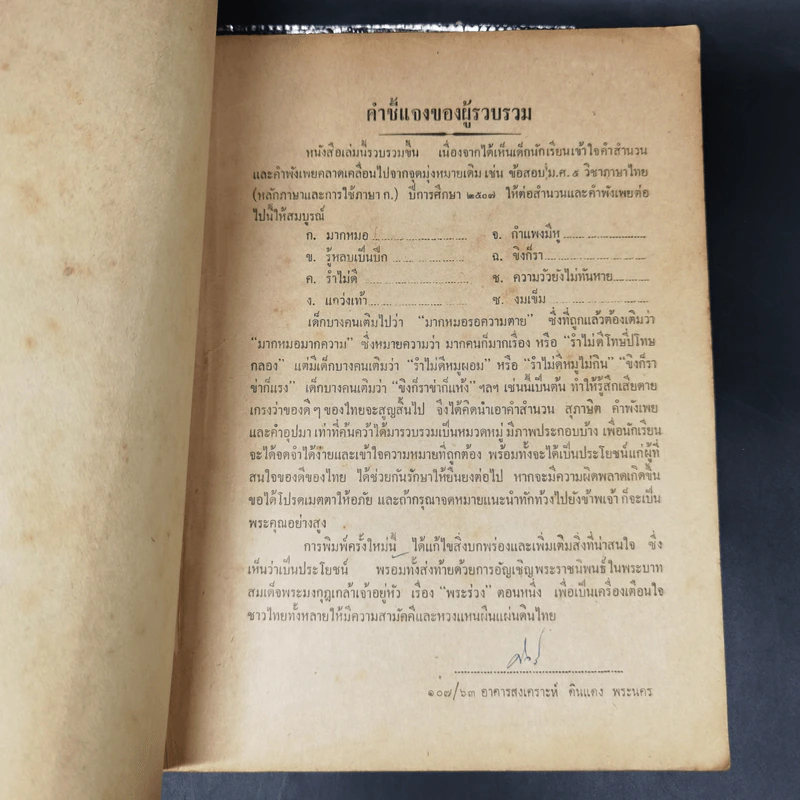 คำชี้แจงของผู้รวบรวม
หนังสือเล่มนี้รวบรวมขึ้น เนื่องจากได้เห็นเด็กนักเรียนเข้าใจคำสำนวน
และคำพังเพยคลาดเคลื่อนไปจากจุดมุ่งหมายเดิม เช่น ข้อสอบ ม.ศ. ๕ วิชาภาษาไทย
(หลักภาษาและการใช้ภาษา ก.) ปีการศึกษา ๒๕๐๗ ให้ต่อสำนวนและคำพังเพยต่อ
ไปนี้ให้สมบูรณ์
ก. มากหมอ.......................... จ. กำแพงมีหู..........................
ข. รู้หลบเป็นปีก ...................... ฉ. ขิงก็รา..........................
ค. รำไม่ดี .......................... ช. ความวัวยังไม่ทันหาย..............
ง. แกว่งเท้า.......................... ซ. งมเข็ม..........................
เด็กบางคนเติมไปว่า “มากหมอรอความตาย” ซึ่งที่ถูกแล้วต้องเติมว่า
“มากหมอมากความ” ซึ่งหมายความว่า มากคนก็มากเรื่อง หรือ “รำไม่ดีโทษปี่โทษ
กลอง” แต่มีเด็กบางคนเติมว่า “รำไม่ดีหมูผอม” หรือ “รำไม่ดีหมูไม่กิน” “ขิงก็รา
ข่าก็แรง” เด็กบางคนเติมว่า “ขิงก็ราข่าก็แห้ง” ฯลฯ เช่นนี้เป็นต้น ทำให้รู้สึกเสียดาย
เกรงว่าของดี ๆ ของไทยจะสูญสิ้นไป จึงได้คิดนำเอาคำสำนวน สุภาษิต คำพังเพย
และคำอุปมา เท่าที่ค้นคว้าได้มารวบรวมเป็นหมวดหมู่ มีภาพประกอบบ้าง เพื่อนักเรียน
จะได้จดจำได้ง่ายและเข้าใจความหมายที่ถูกต้อง พร้อมทั้งจะได้เป็นประโยชน์แก่ผู้ที่
สนใจของดีของไทย ได้ช่วยกันรักษาให้ยืนยงต่อไป หากจะมีความผิดพลาดเกิดขึ้น
ขอได้โปรดเมตตาให้อภัย และถ้ากรุณาจดหมายแนะนำทักท้วงไปยังข้าพเจ้า ก็จะเป็น
พระคุณอย่างสูง
การพิมพ์ครั้งใหม่นี้ ได้แก้ไขสิ่งบกพร่องและเพิ่มเติมสิ่งที่น่าสนใจ ซึ่ง
เห็นว่าเป็นประโยชน์ พรอมทั้งส่งท้ายด้วยการอัญเชิญพระราชนิพนธ์ในพระบาท
สมเด็จพระมงกุฎเกล้าเจ้าอยู่หัว เรื่อง “พระร่วง” ตอนหนึ่ง เพื่อเป็นเครื่องเตือนใจ
ชาวไทยทั้งหลายให้มีความสามัคคีและหวงแหนผืนแผ่นดินไทย
๑๐๗/๖๓ อาคารสงเคราะห์ ดินแดง พระนคร